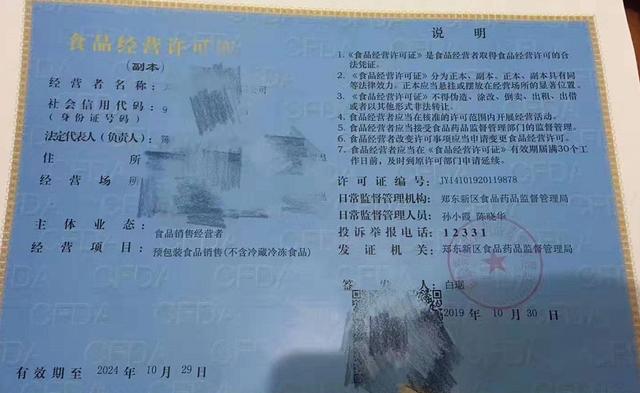 食品经营许可证
(副本)
经营者名称:
社会信用代码: 9
(身份证号码)
法定代表人(负责人):
住 所
经营场所
主体业态: 食品销售经营者
经营项目: 预包装食品销售(不含冷藏冷冻食品)
有效期至 2024 年 10 月 29 日
说 明
1.《食品经营许可证》是食品经营者取得食品经营许可的合
法凭证。
2.《食品经营许可证》分为正本、副本。正本、副本具有同
等法律效力。正本应当悬挂或摆放在经营场所的显著位置。
3.《食品经营许可证》不得伪造、涂改、倒卖、出租、出借
或者以其他形式非法转让。
4. 食品经营者应当在核准的许可范围内开展经营活动。
5. 食品经营者应当接受食品药品监督管理部门的监督管理。
6. 食品经营者改变许可事项应当申请变更食品经营许可。
7. 食品经营者应当在《食品经营许可证》有效期届满30个工
作日前,及时到原许可部门申请延续。
许可证编号: JY14101920119878
日常监督管理机构: 郑东新区食品药品监督管理局
日常监督管理人员: 孙小霞 陈晓华
投诉举报电话: 12331
发证机关: 郑东新区食品药品监督管理局
签发人: 白琚
2019 年 10 月 30 日